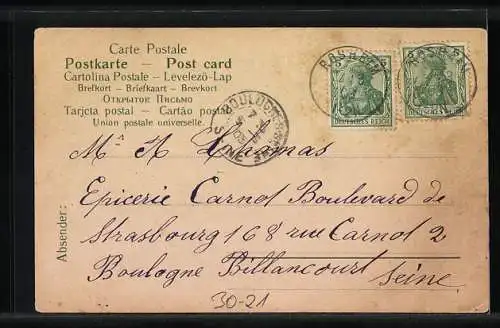 Carte Postale
Postkarte – Post card
Cartolina Postale – Levelező-Lap
Brefkort – Briefkaart – Brevkort
Открытое Письмо
Tarjeta postal – Cartão postal
Union postale universelle.
ROSHEIM
ROSHEIM
DEUTSCHES REICH
DEUTSCHES REICH
BOULOGNE
SEINE
Mr A Thomas
Epicerie Carnot Boulevard de
Strasbourg 168 rue Carnot 2
Boulogne Billancourt
Seine
Absender:
30-21